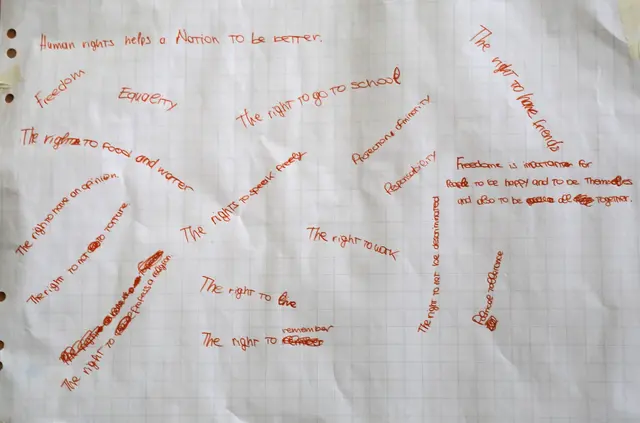 Human rights helps a Nation to be better.
Freedom
Equality
The right to go to school
The right to have friends
The right to food and warter
Protection of minority
Responsibility
The rights to speak freely
Freedome is important for
People to be happy and to be Themselves
and also to be all together.
The right to have an opinion.
The right to not to torture
The right to work
The right to not be discriminated
The right to express a religion
The right to live
The right to remember